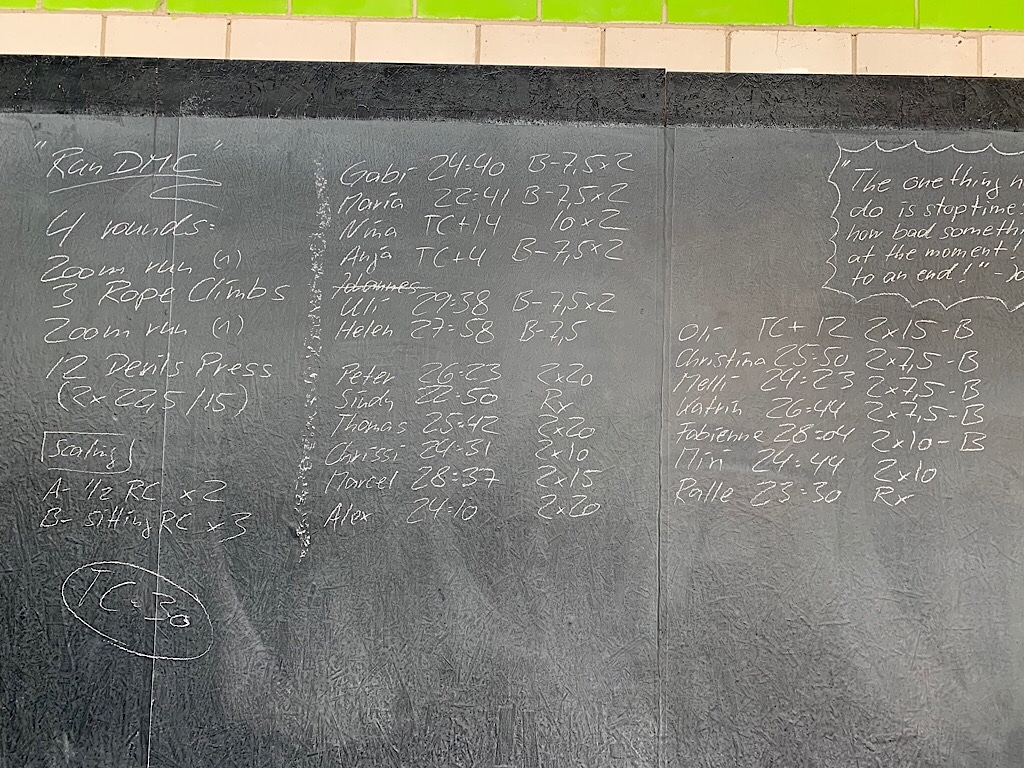 "Run DMC"
4 rounds:
200m run (1)
3 Rope Climbs
200m run (1)
12 Devils Press
(2x22,5/15)
Scaling
A- 1/2 RC x2
B- sitting RC x3
TC=30
Gabi 24:40 B-7,5x2
Maria 22:41 B-7,5x2
Nina TC+14 10x2
Anja TC+4 B-7,5x2
Johannes
Uli 29:38 B-7,5x2
Helen 27:58 B-7,5
Peter 26:23 2x20
Sindy 22:50 Rx
Thomas 25:42 2x20
Chrissi 24:31 2x10
Marcel 28:37 2x15
Alex 24:10 2x20
"The one thing
do is stop time.
how bad someth
at the moment!
to an end!" -
Oli TC+12 2x15-B
Christina 25:50 2x7,5-B
Melli 24:23 2x7,5-B
Katrin 26:44 2x7,5-B
Fabienne 28:04 2x10-B
Miri 24:44 2x10
Ralle 23:30 Rx